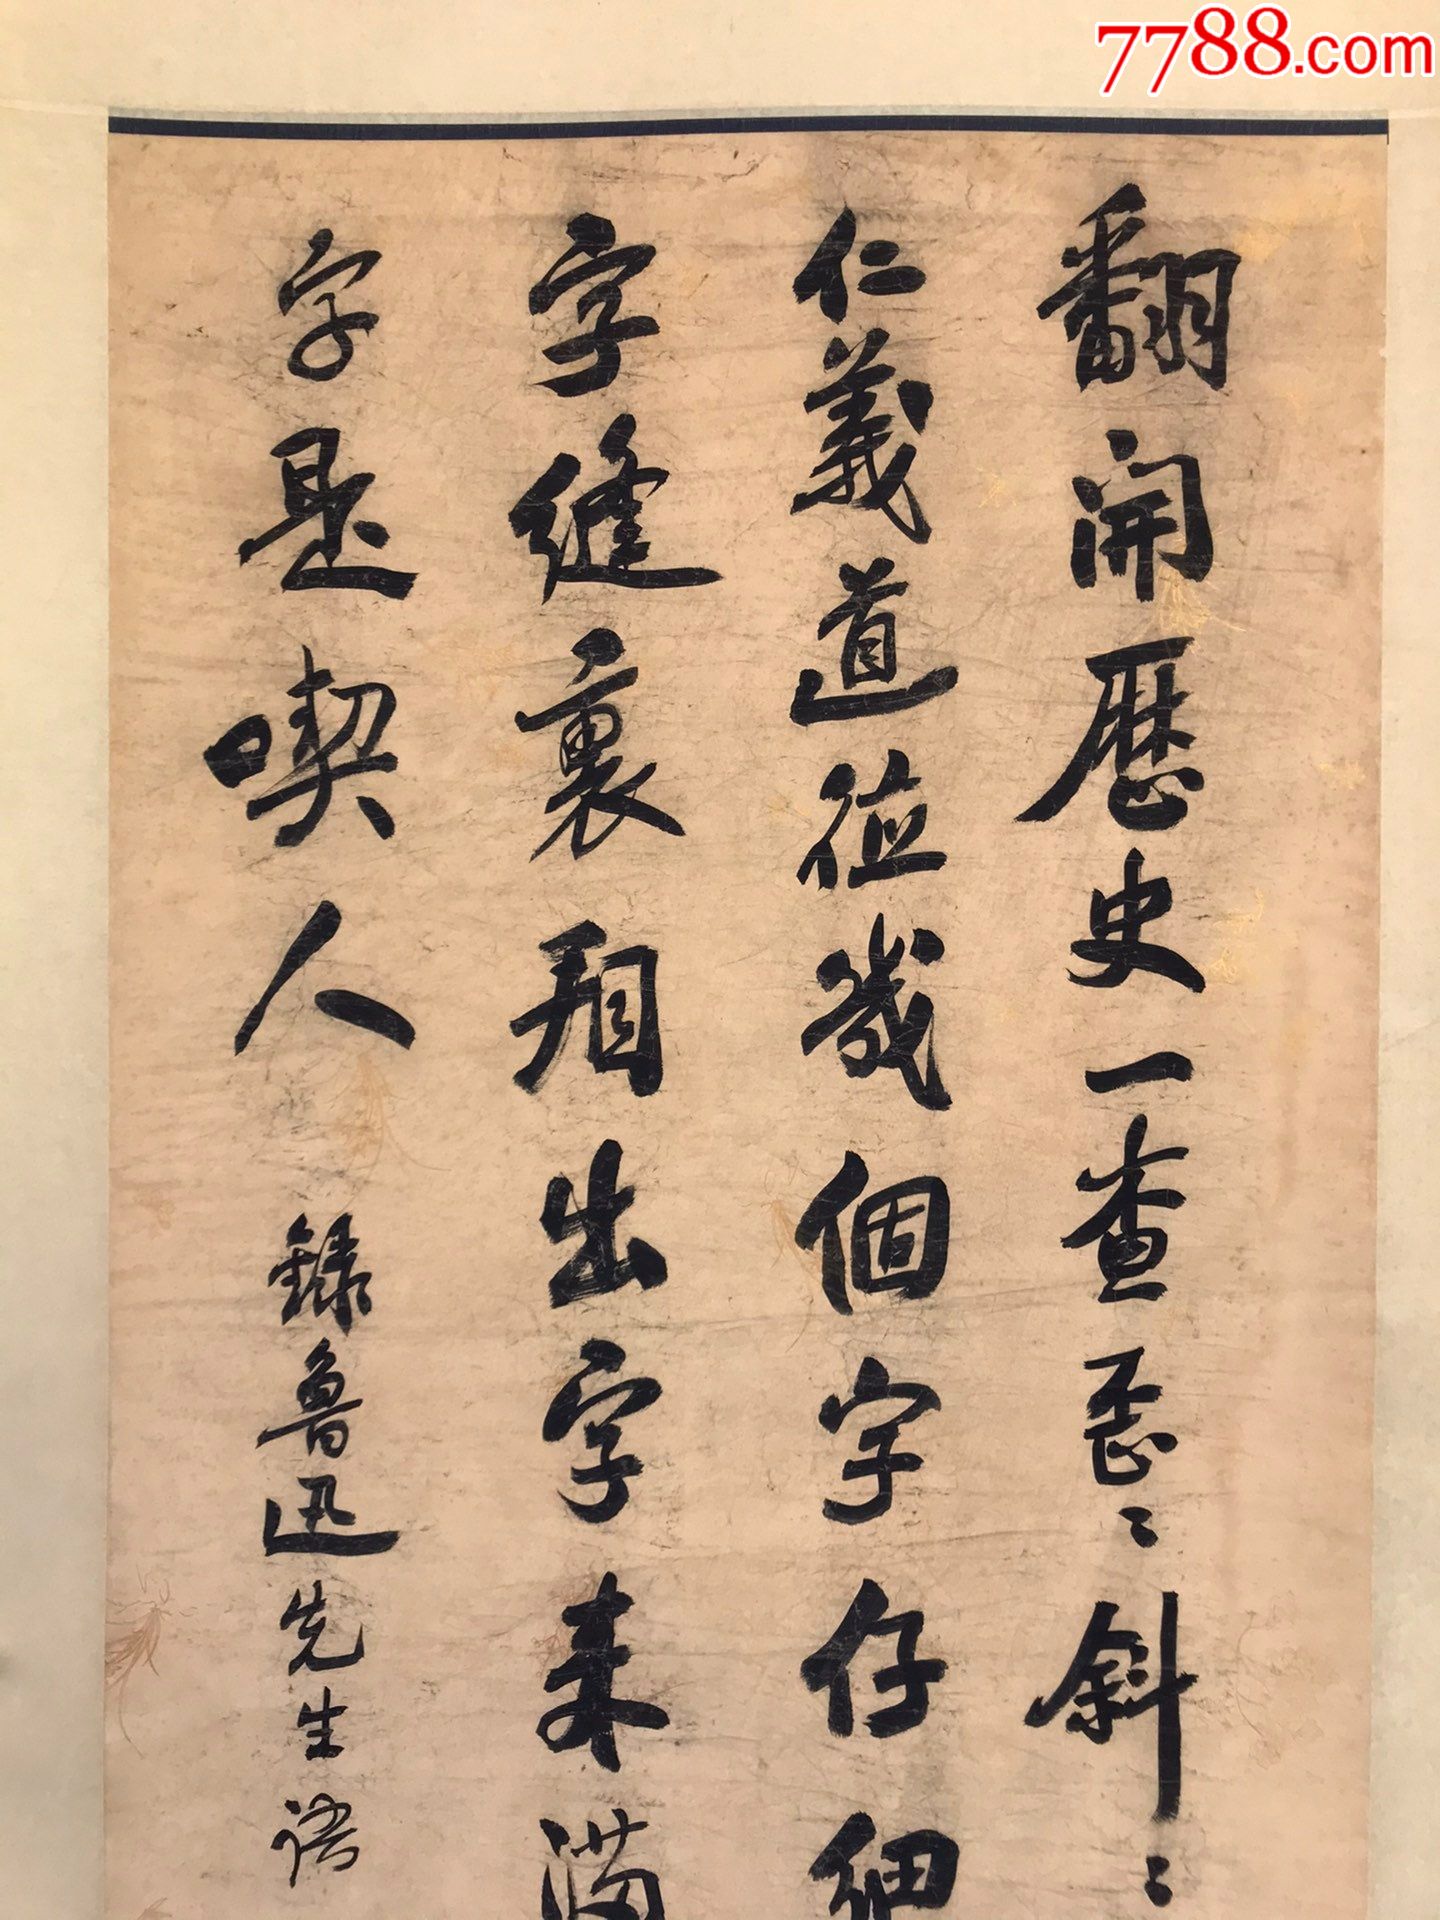 7788.com
翻開歷史一查歪〻斜〻
仁義道德幾個字仔細
字縫裏看出字來滿
字是喫人
錄魯迅先生語